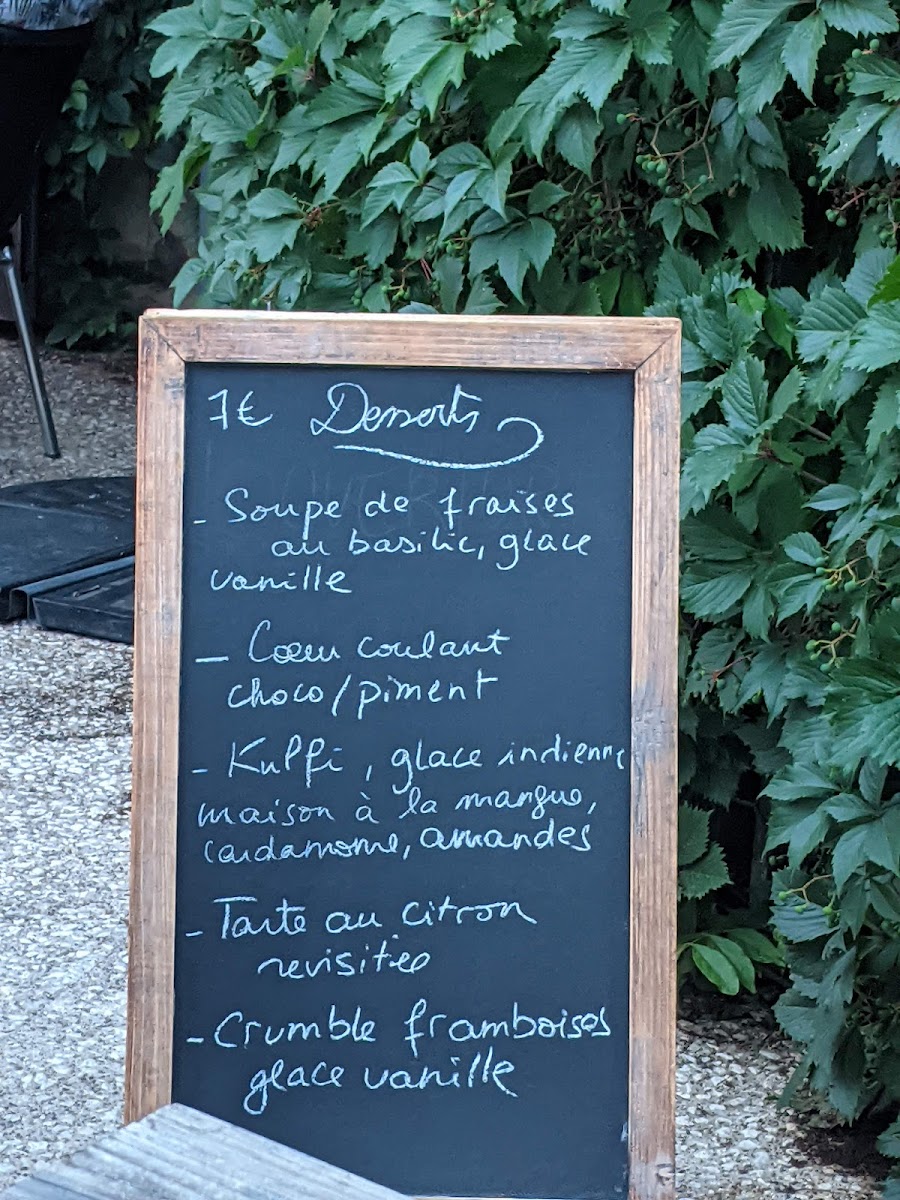 7€ Desserts
- Soupe de fraises
au basilic, glace
vanille
- Cœur coulant
choco/piment
- Kulffi, glace indienne
maison à la mangue,
cardamome, amandes
- Tarte au citron
revisitée
- Crumble framboises
glace vanille